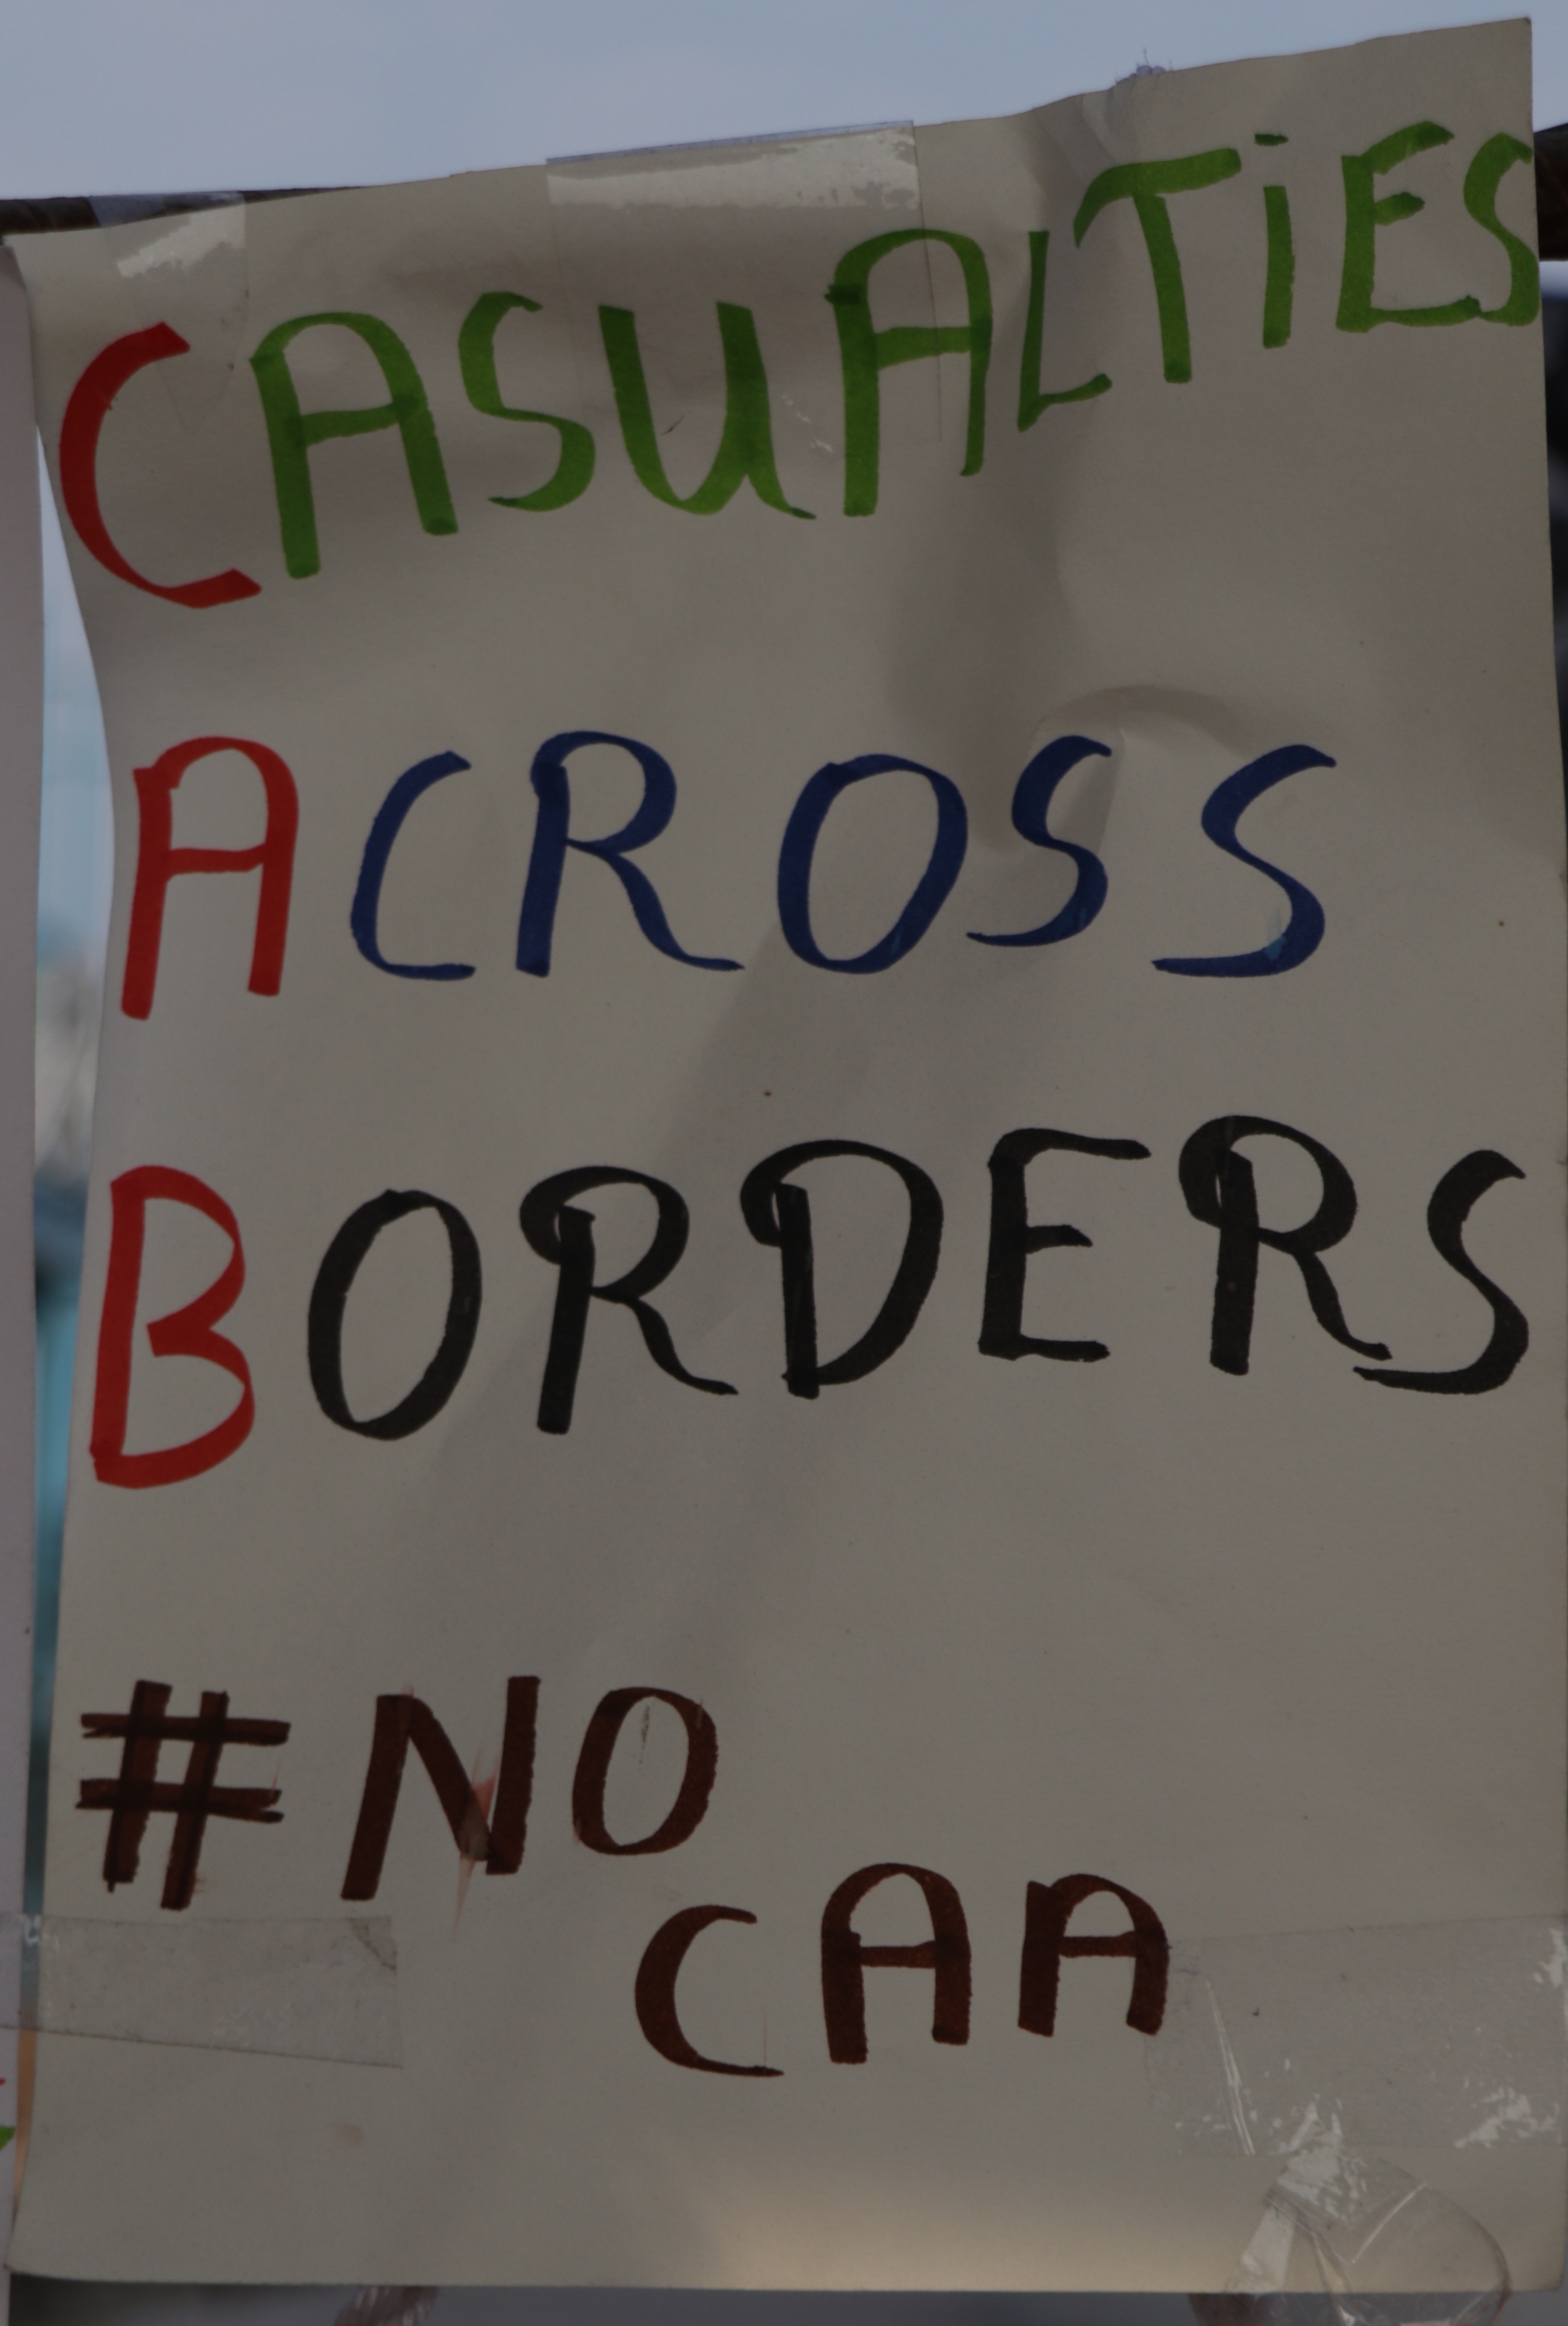 CASUALTiES
ACROSS
BORDERS
#NO
CAA